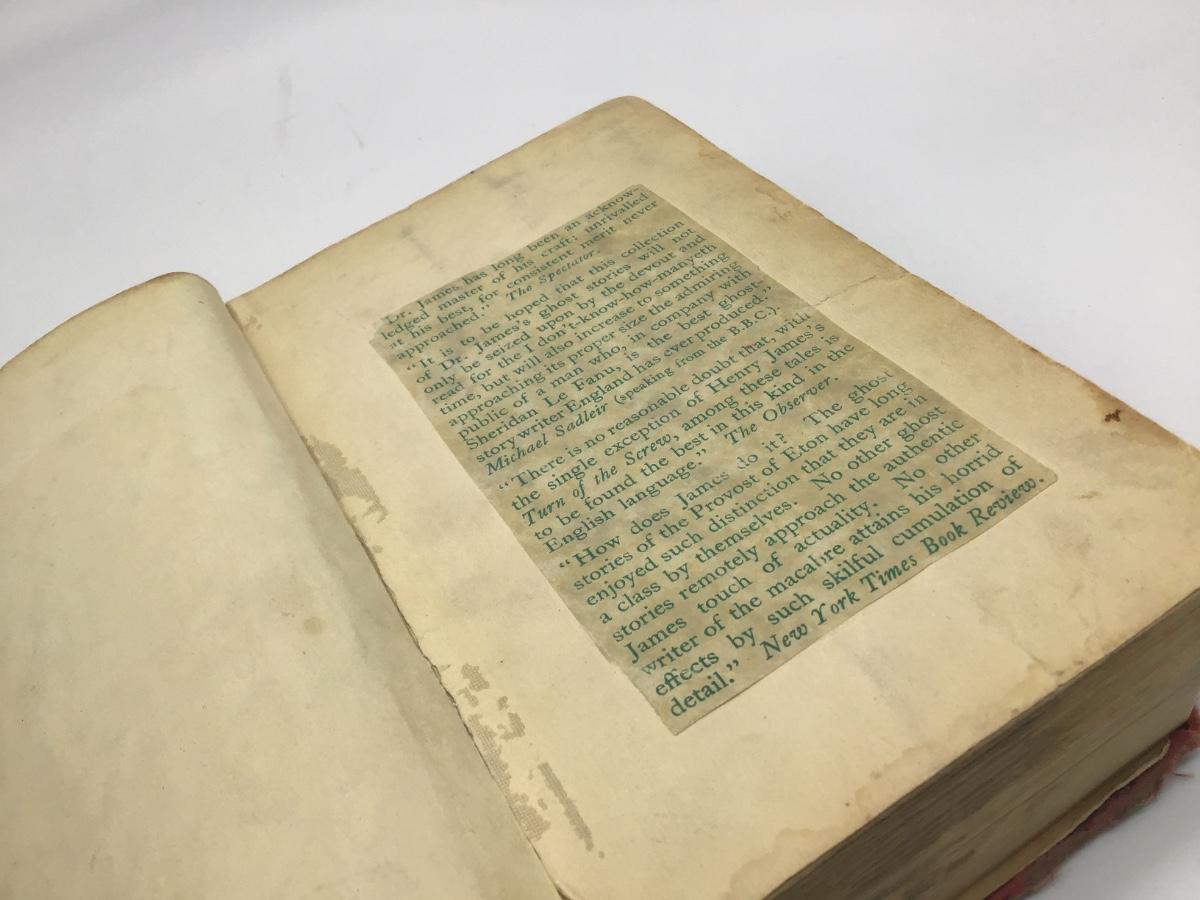 "Dr. James has long been an acknow-
ledged master of his craft; unrivalled
at his best, for consistent merit never
approached." The Spectator.
"It is to be hoped that this collection
of Dr. James's ghost stories will not
only be seized upon by the devout and
read for the I don't-know-how-manyeth
time, but will also increase to something
approaching its proper size the admiring
public of a man who, in company with
Sheridan Le Fanu, is the best ghost-
story writer England has ever produced."
Michael Sadleir (speaking from the B.B.C.).
"There is no reasonable doubt that, with
the single exception of Henry James's
Turn of the Screw, among these tales is
to be found the best in this kind in the
English language." The Observer.
"How does James do it? The ghost
stories of the Provost of Eton have long
enjoyed such distinction that they are in
a class by themselves. No other ghost
stories remotely approach the authentic
James touch of actuality. No other
writer of the macabre attains his horrid
effects by such skilful cumulation of
detail." New York Times Book Review.